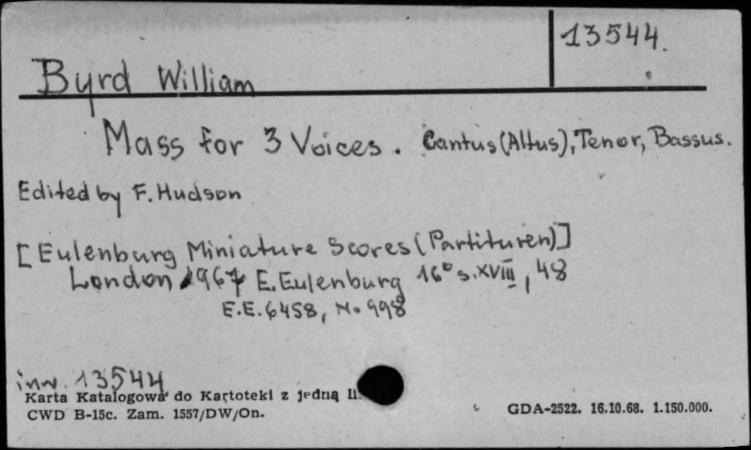 13544.
Byrd William
Mass for 3 Voices. Cantus (Altus), Tenor, Bassus.
Edited by F. Hudson
[Eulenburg Miniature Scores (Partituren)]
London 1967 E. Eulenburg 16° s. XVIII, 48
E.E. 6458, No 998
inw. 13544
Karta Katalogowa do Kartoteki z jedną li
CWD B-15c. Zam. 1557/DW/On.
GDA-2522. 16.10.68. 1.150.000.